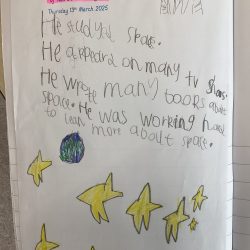 Thursday 13th March 2025
He studyd space.
He appeard on many tv shows.
He wrote many books about
space. He was working hard
to lean more about space.